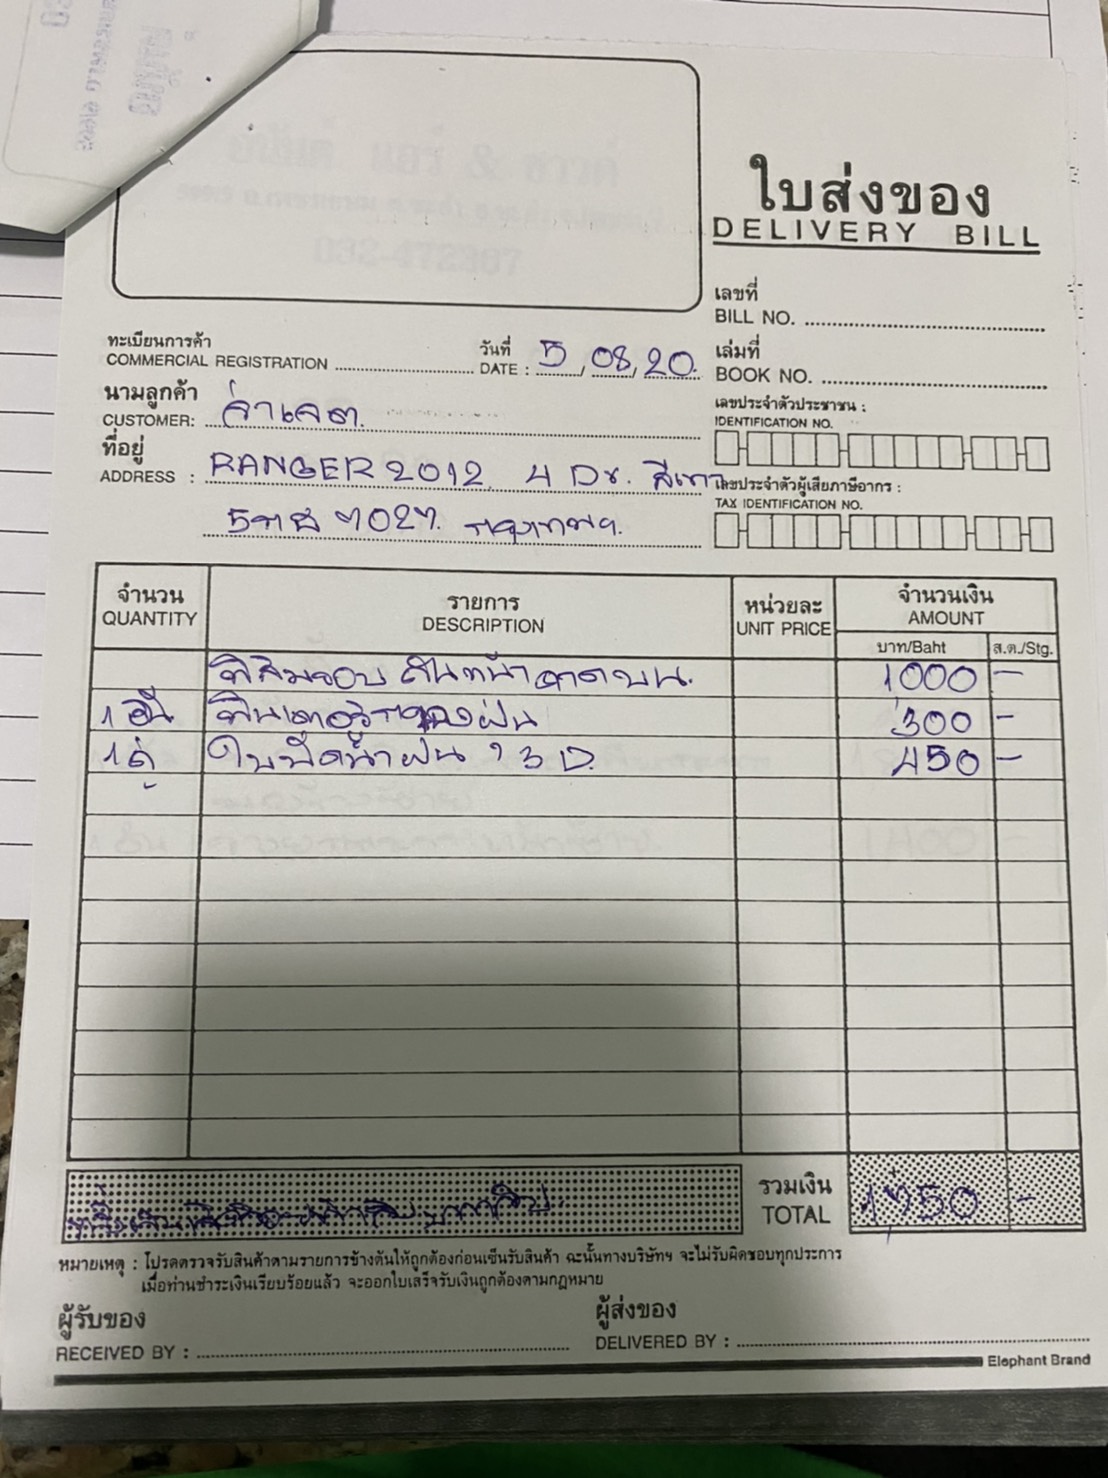 ใบส่งของ
DELIVERY BILL
เลขที่
BILL NO.
ทะเบียนการค้า
COMMERCIAL REGISTRATION
วันที่
DATE : 5, 08, 20.
เล่มที่
BOOK NO.
นามลูกค้า
CUSTOMER: จ่าเจต.
เลขประจำตัวประชาชน :
IDENTIFICATION NO.
ที่อยู่
ADDRESS : RANGER 2012. 4 Dr. สีเทา
เลขประจำตัวผู้เสียภาษีอากร :
TAX IDENTIFICATION NO.
7027. กรุงเทพฯ.
จำนวน
QUANTITY
รายการ
DESCRIPTION
หน่วยละ
UNIT PRICE
จำนวนเงิน
AMOUNT
บาท/Baht ส.ต./Stg.
หน้า บน. 1000 -
1 อัน 300 -
1 คู่ ใบปัดน้ำฝน 3D. 450 -
รวมเงิน
TOTAL 1,750 -
หมายเหตุ : โปรดตรวจรับสินค้าตามรายการข้างต้นให้ถูกต้องก่อนเซ็นรับสินค้า ฉะนั้นทางบริษัทฯ จะไม่รับผิดชอบทุกประการ
เมื่อท่านชำระเงินเรียบร้อยแล้ว จะออกใบเสร็จรับเงินถูกต้องตามกฎหมาย
ผู้รับของ
RECEIVED BY :
ผู้ส่งของ
DELIVERED BY :
Elephant Brand